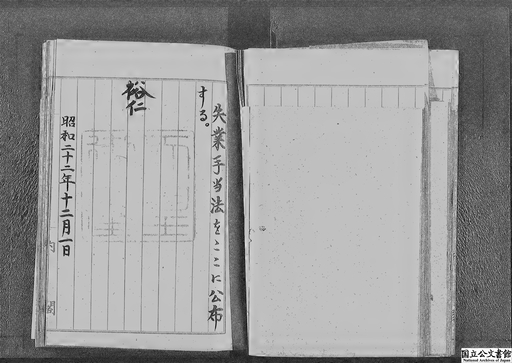 失業手当法をここに公布
する。
裕仁
昭和二十二年十二月一日
内閣
国立公文書館
National Archives of Japan